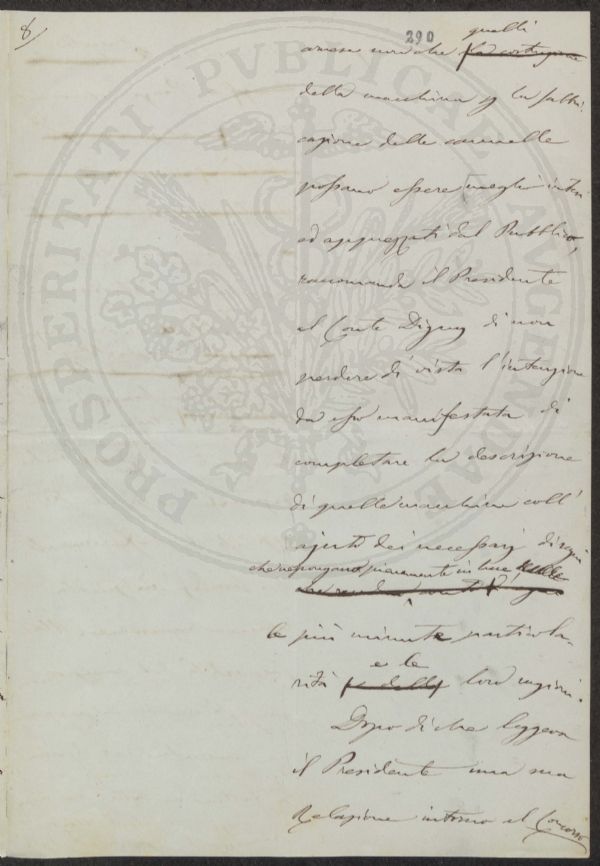 8/
290
quelli
la costruzione
della macchina per la fabbri-
cazione delle cannelle
possano essere meglio intesi
ed apprezzati dal Pubblico,
raccomanda il Presidente
al Conte Digny di non
perdere di vista l'intenzione
da esso manifestata di
completare la descrizione
di quelle macchine coll'
ajuto dei necessarj disegni
che ne pongano pienamente in luce
le più minute particola-
e le
rità loro ragioni.
Dopo di che leggeva
il Presidente una sua
Relazione intorno al Concorso
PROSPERITATI PVBLICAE AVGENDAE